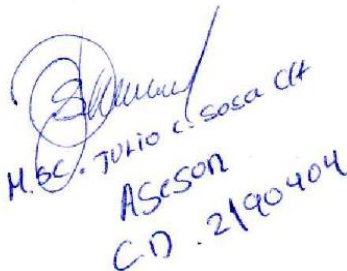 M.Sc. Julio C. Sosa
ASESOR
C.D. 2190404